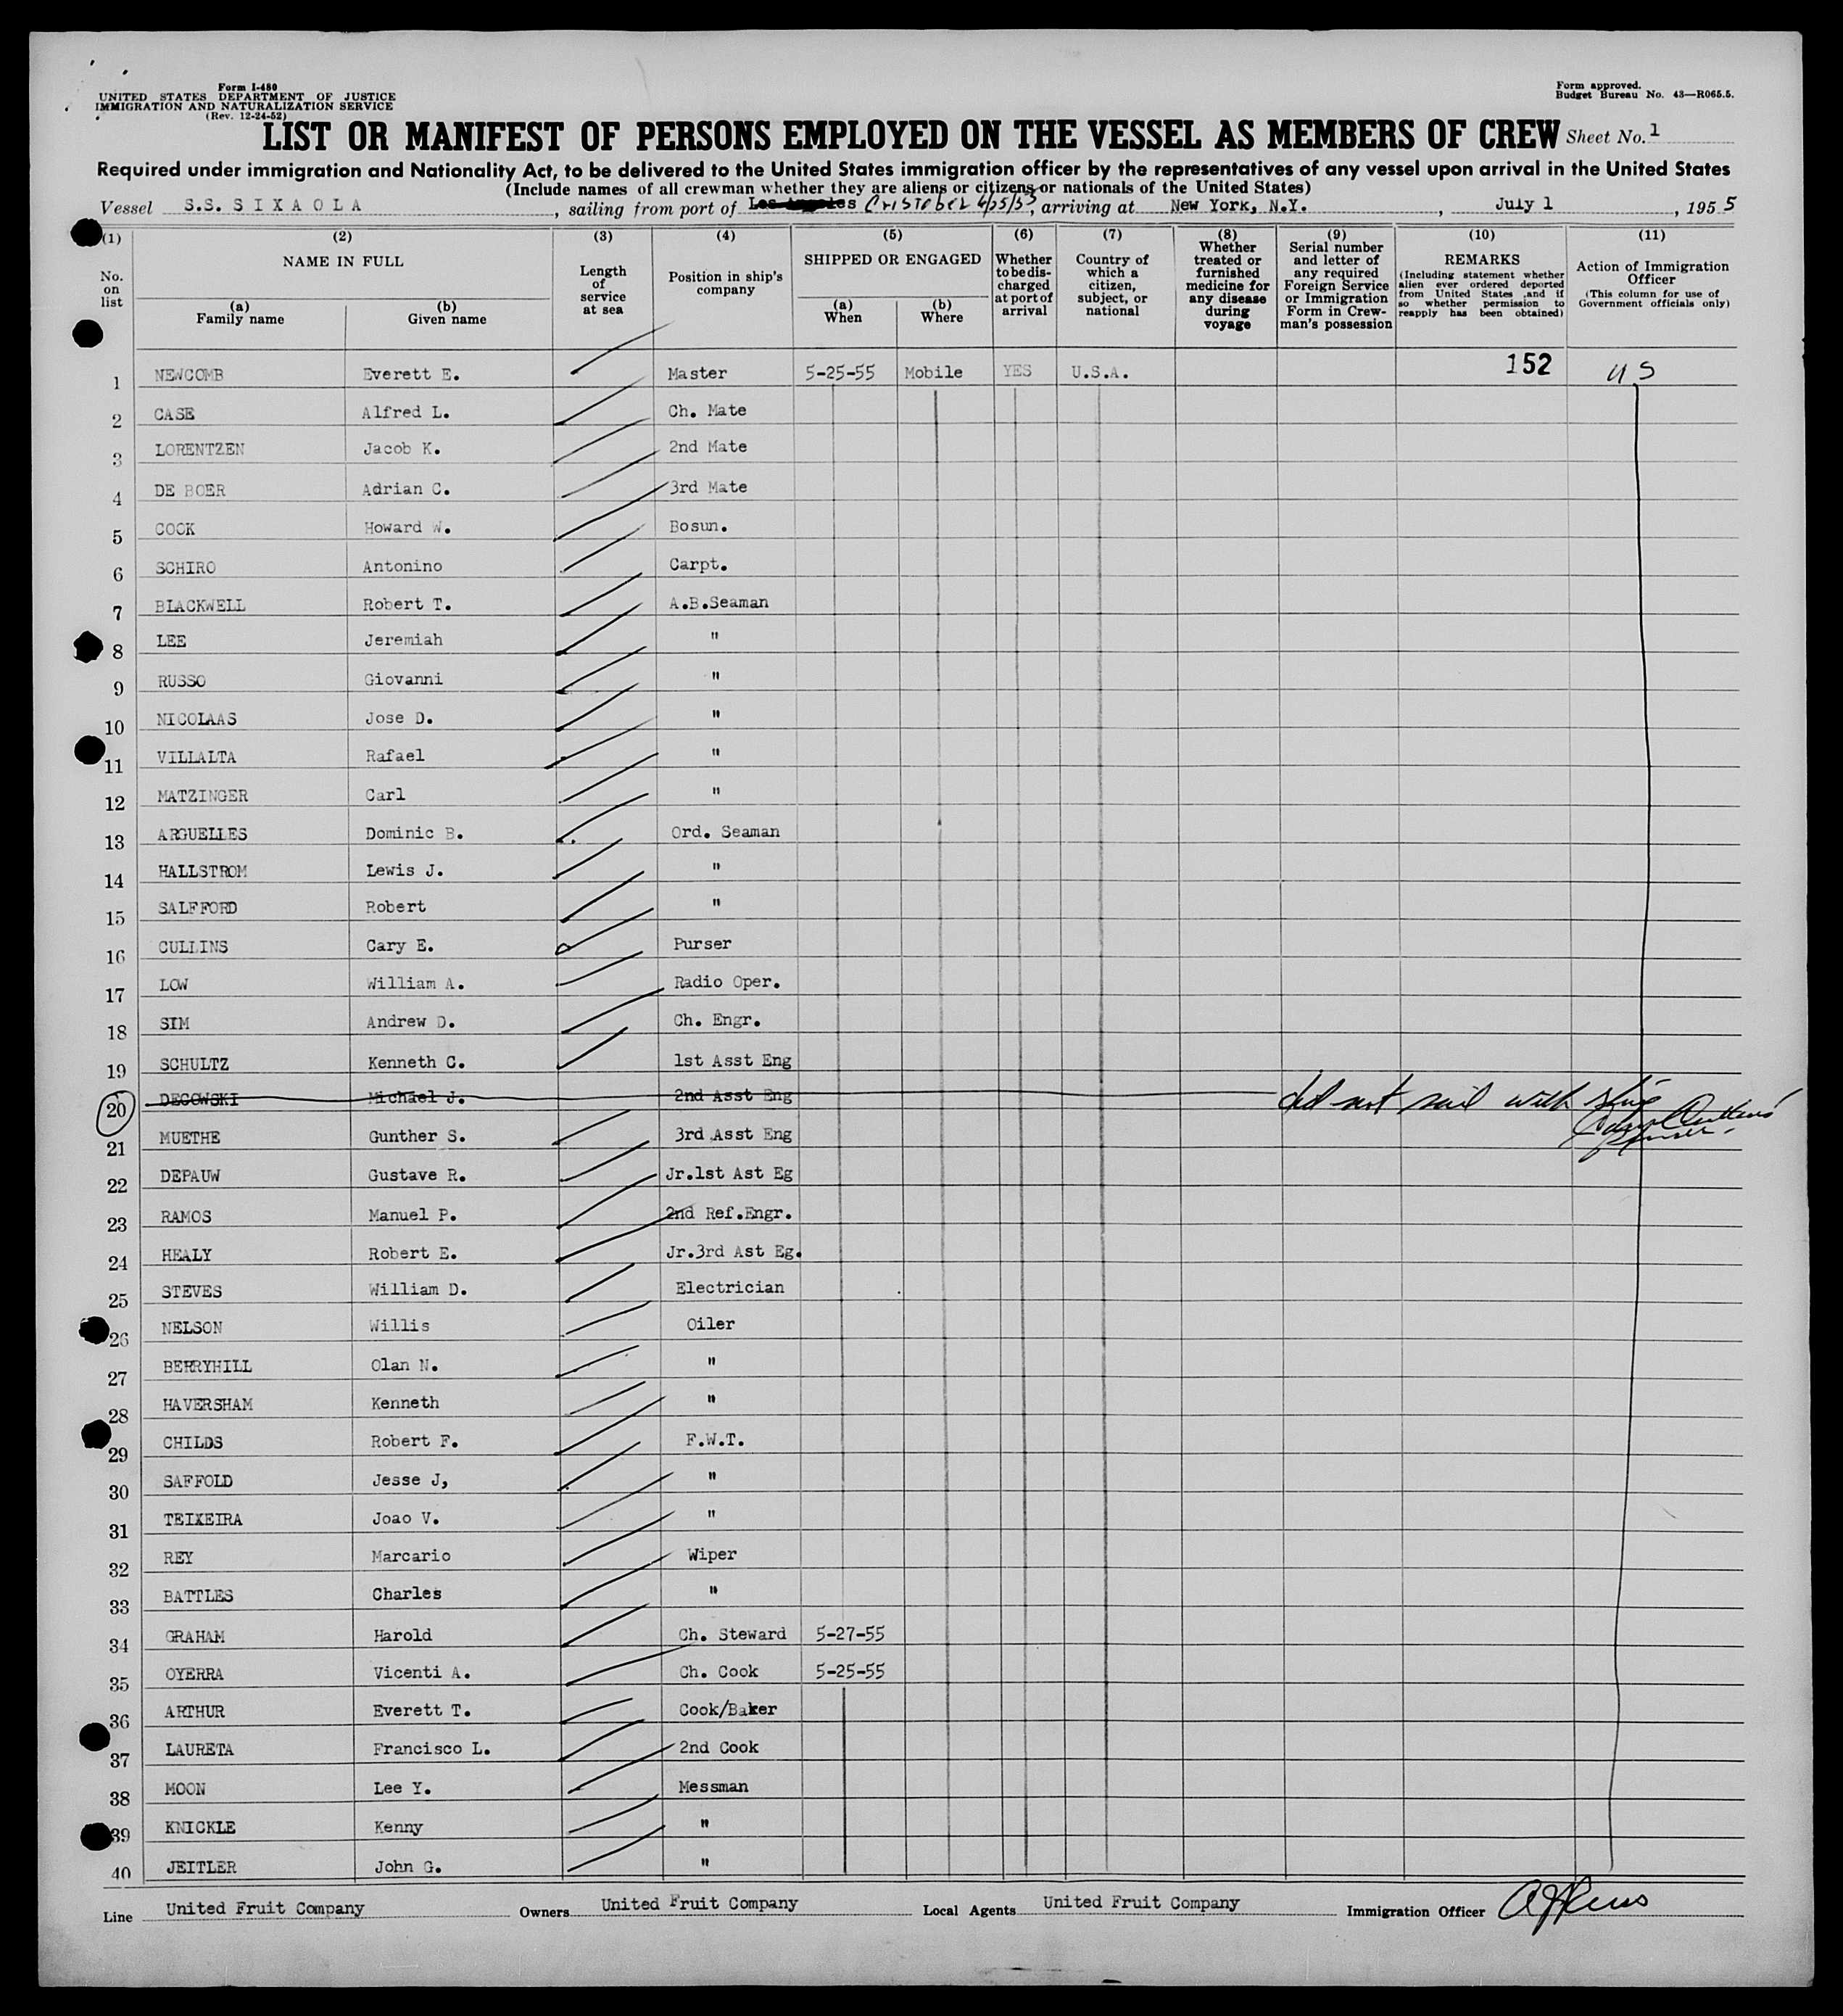 Form I-480
UNITED STATES DEPARTMENT OF JUSTICE
IMMIGRATION AND NATURALIZATION SERVICE
(Rev. 12-24-52)
Form approved.
Budget Bureau No. 43—R065.5.
LIST OR MANIFEST OF PERSONS EMPLOYED ON THE VESSEL AS MEMBERS OF CREW Sheet No. 1
Required under immigration and Nationality Act, to be delivered to the United States immigration officer by the representatives of any vessel upon arrival in the United States
(Include names of all crewman whether they are aliens or citizens or nationals of the United States)
Vessel S.S. SIXAOLA, sailing from port of Los Angeles Cristobel 6/25/55, arriving at New York, N.Y., July 1, 1955
(1) (2) (3) (4) (5) (6) (7) (8) (9) (10) (11)
No. on list
NAME IN FULL
(a) Family name
(b) Given name
Length of service at sea
Position in ship's company
SHIPPED OR ENGAGED
(a) When
(b) Where
Whether to be discharged at port of arrival
Country of which a citizen, subject, or national
Whether treated or furnished medicine for any disease during voyage
Serial number and letter of any required Foreign Service or Immigration Form in Crewman's possession
REMARKS
(Including statement whether alien ever ordered deported from United States and if so whether permission to reapply has been obtained)
Action of Immigration Officer
(This column for use of Government officials only)
1 NEWCOMB Everett E. Master 5-25-55 Mobile YES U.S.A. 152 US
2 CASE Alfred L. Ch. Mate
3 LORENTZEN Jacob K. 2nd Mate
4 DE BOER Adrian C. 3rd Mate
5 COOK Howard W. Bosun.
6 SCHIRO Antonino Carpt.
7 BLACKWELL Robert T. A.B.Seaman
8 LEE Jeremiah "
9 RUSSO Giovanni "
10 NICOLAAS Jose D. "
11 VILLALTA Rafael "
12 MATZINGER Carl "
13 ARGUELLES Dominic B. Ord. Seaman
14 HALLSTROM Lewis J. "
15 SALFFORD Robert "
16 CULLINS Cary E. Purser
17 LOW William A. Radio Oper.
18 SIM Andrew D. Ch. Engr.
19 SCHULTZ Kenneth C. 1st Asst Eng
20 DEGOWSKI Michael J. 2nd Asst Eng did not sail with ship
Purser.
21 MUETHE Gunther S. 3rd Asst Eng
22 DEPAUW Gustave R. Jr.1st Ast Eg
23 RAMOS Manuel P. 2nd Ref.Engr.
24 HEALY Robert E. Jr.3rd Ast Eg.
25 STEVES William D. Electrician
26 NELSON Willis Oiler
27 BERRYHILL Olan N. "
28 HAVERSHAM Kenneth "
29 CHILDS Robert F. F.W.T.
30 SAFFOLD Jesse J, "
31 TEIXEIRA Joao V. "
32 REY Marcario Wiper
33 BATTLES Charles "
34 GRAHAM Harold Ch. Steward 5-27-55
35 OYERRA Vicenti A. Ch. Cook 5-25-55
36 ARTHUR Everett T. Cook/Baker
37 LAURETA Francisco L. 2nd Cook
38 MOON Lee Y. Messman
39 KNICKLE Kenny "
40 JEITLER John G. "
Line United Fruit Company Owners United Fruit Company Local Agents United Fruit Company Immigration Officer